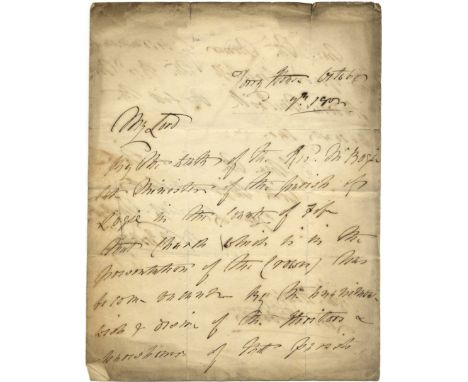 October
My Lord
By the death of the Revd. Mr
Minister of the parish of
Logie in the County of Fife
that Church (which is in the
presentation of the Crown) has
become vacant by the
& desire of the Heritors &
of that parish